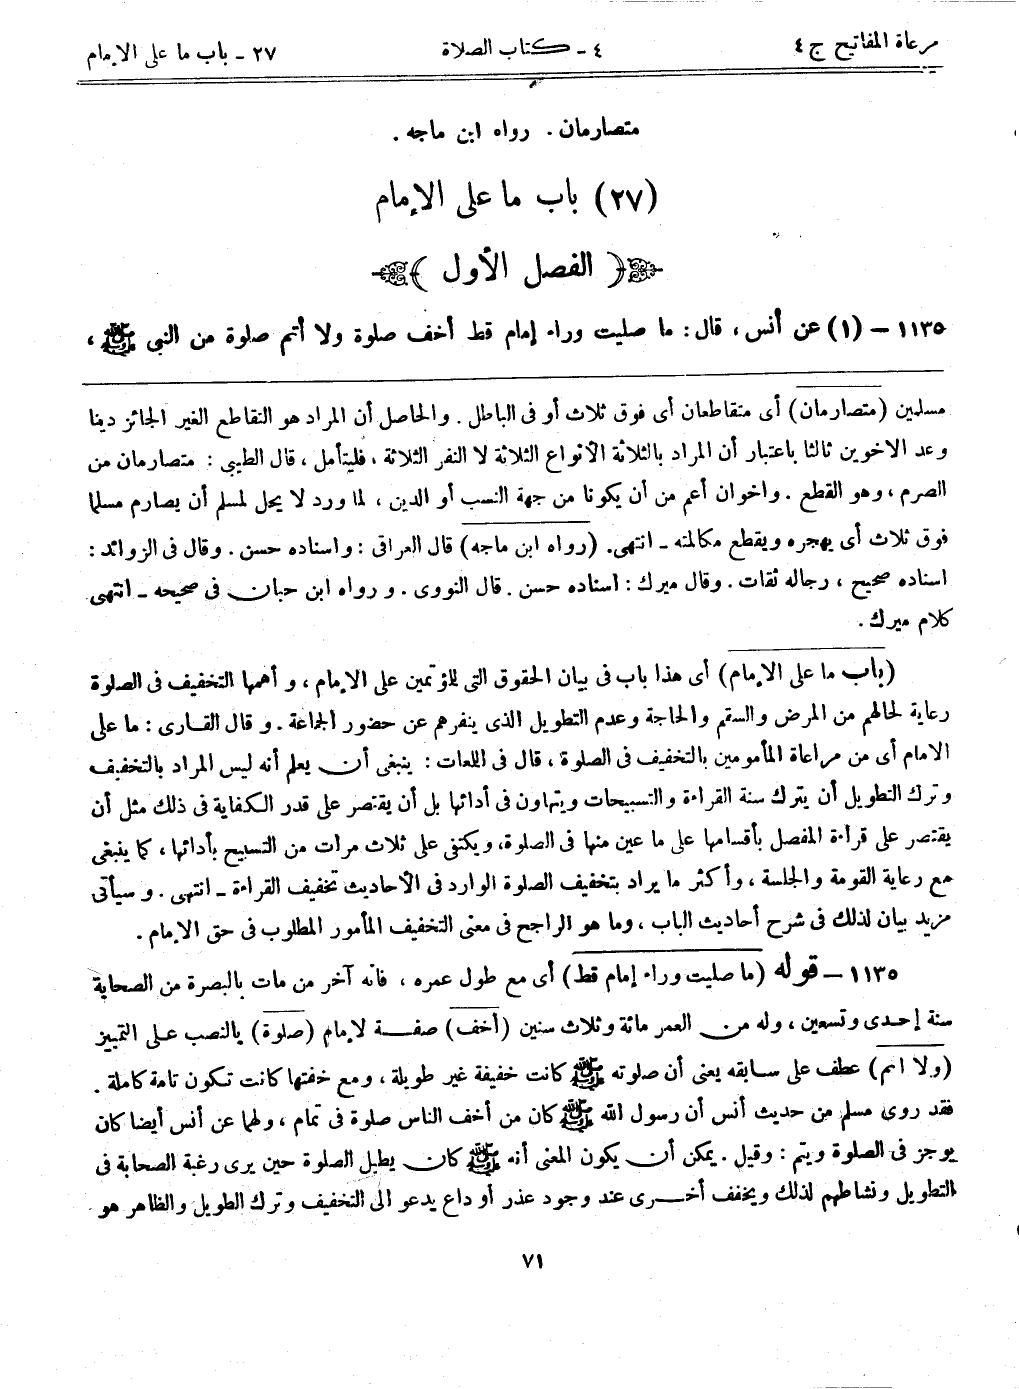 مرعاة المفاتيح ج ٤ ٤ - كتاب الصلاة ٢٧ - باب ما على الإمام
متصارمان . رواه ابن ماجه .
(٢٧) باب ما على الإمام
﴿ الفصل الأول ﴾
١١٣٥ – (١) عن أنس ، قال : ما صليت وراء إمام قط أخف صلوة ولا أتم صلوة من النبي ﷺ ،
مسلمين (متصارمان) أى متقاطعان أى فوق ثلاث أو فى الباطل . والحاصل أن المراد هو التقاطع الغير الجائز دينا
وعد الاخوين ثالثا باعتبار أن المراد بالثلاثة الأنواع الثلاثة لا النفر الثلاثة ، فليتأمل ، قال الطيبي : متصارمان من
الصرم ، وهو القطع . واخوان أعم من أن يكونا من جهة النسب أو الدين ، لما ورد لا يحل لمسلم أن يصارم مسلما
فوق ثلاث أى يهجره ويقطع مكالمته - انتهى. (رواه ابن ماجه) قال العراقى : واسناده حسن . وقال فى الزوائد :
اسناده صحيح ، رجاله ثقات . وقال ميرك : اسناده حسن . قال النووى . و رواه ابن حبان فى صحيحه - انتهى
كلام ميرك .
(باب ما على الإمام) أى هذا باب فى بيان الحقوق التى للمؤتمين على الإمام ، و أهمها التخفيف فى الصلوة
رعاية لحالهم من المرض والسقم والحاجة وعدم التطويل الذى ينفرهم عن حضور الجماعة . و قال القارى : ما على
الامام أى من مراعاة المأمومين بالتخفيف فى الصلوة ، قال فى اللمعات : ينبغى أن يعلم أنه ليس المراد بالتخفيف
وترك التطويل أن يترك سنة القراءة والتسبيحات ويتهاون فى أدائها بل أن يقتصر على قدر الكفاية فى ذلك مثل أن
يقتصر على قراءة المفصل بأقسامها على ما عين منها فى الصلوة، ويكتفى على ثلاث مرات من التسبيح بأدائها ، كما ينبغى
مع رعاية القومة والجلسة ، وأكثر ما يراد بتخفيف الصلوة الوارد فى الأحاديث تخفيف القراءة - انتهى . و سيأتى
مزيد بيان لذلك فى شرح أحاديث الباب ، وما هو الراجح فى معنى التخفيف المأمور المطلوب فى حق الإمام .
١١٣٥ – قوله (ما صليت وراء إمام قط) أى مع طول عمره ، فانه آخر من مات بالبصرة من الصحابة
سنة إحدى وتسعين ، وله من العمر مائة وثلاث سنين (أخف) صفة لإمام (صلوة) بالنصب على التمييز
(ولا اتم) عطف على سابقه يعنى أن صلوته ﷺ كانت خفيفة غير طويلة ، ومع خفتها كانت تكون تامة كاملة .
فقد روى مسلم من حديث أنس أن رسول الله ﷺ كان من أخف الناس صلوة فى تمام ، ولهما عن أنس أيضا كان
يوجز فى الصلوة ويتم : وقيل . يمكن أن يكون المعنى أنه ﷺ كان يطيل الصلوة حين يرى رغبة الصحابة فى
التطويل ونشاطهم لذلك ويخفف أخرى عند وجود عذر أو داع يدعو الى التخفيف وترك الطويل والظاهر هو
٧١